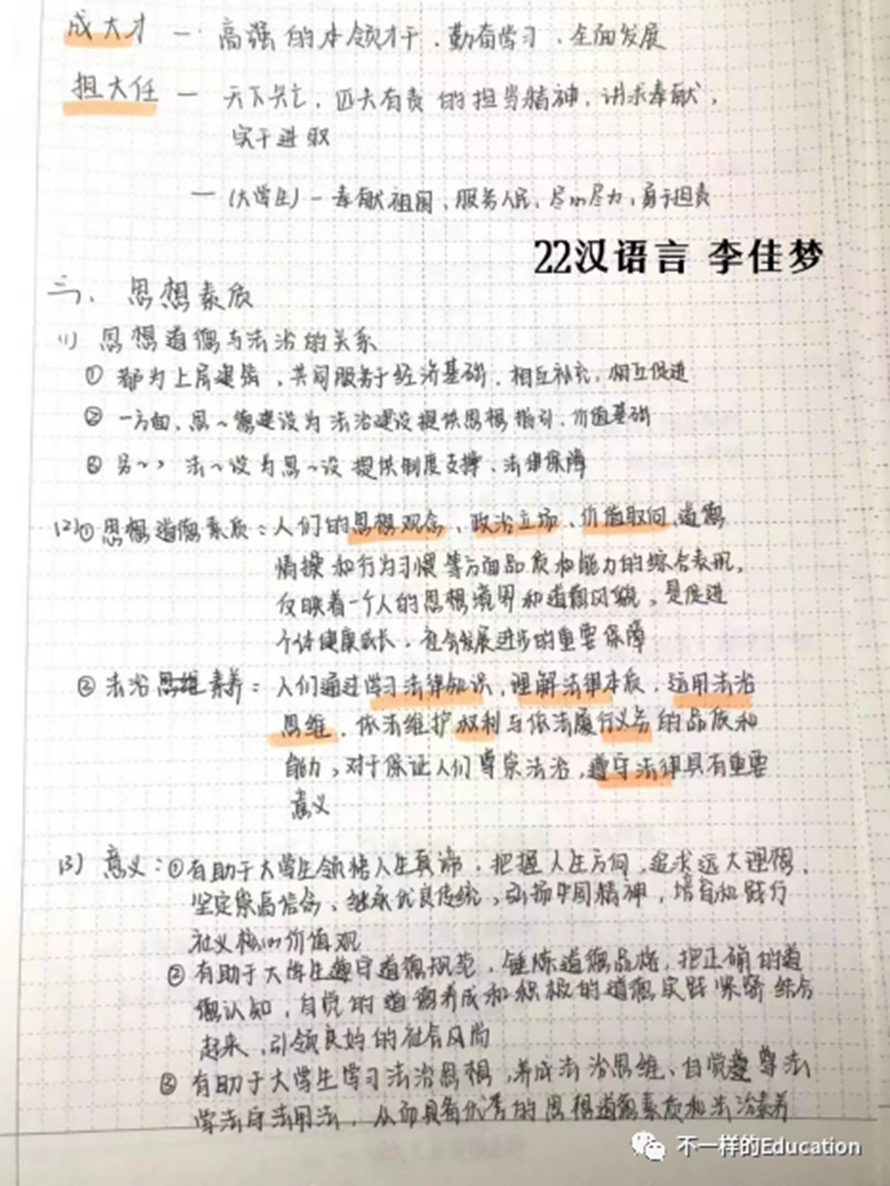 成大才 — 高强的本领才干、勤奋学习、全面发展
担大任 — 天下兴亡、匹夫有责的担当精神、讲求奉献，
实干进取
— (大学生) — 奉献祖国、服务人民、尽心尽力，勇于担责
22汉语言 李佳梦
三、思想素质
(1) 思想道德与法治的关系
① 都为上层建筑，共同服务于经济基础，相互补充，相互促进
② 一方面、思~德建设为法治建设提供思想指引、价值基础
③ 另~，法~设为思~设提供制度支撑、法律保障
(2)① 思想道德素质：人们的思想观念、政治立场、价值取向、道德
情操和行为习惯等方面品质和能力的综合表现，
反映着一个人的思想境界和道德风貌，是促进
个体健康成长，社会发展进步的重要保障
② 法治素养：人们通过学习法律知识、理解法律本质，运用法治
思维、依法维护权利与依法履行义务的品质和
能力，对于保证人们尊崇法治、遵守法律具有重要
意义
(3) 意义：① 有助于大学生领悟人生真谛，把握人生方向，追求远大理想，
坚定崇高信仰、继承优良传统，弘扬中国精神，培育和践行
社义核心价值观
② 有助于大学生遵守道德规范，锤炼道德品格，把正确的道
德认知，自觉的道德养成和积极的道德实践紧密结合
起来，引领良好的社会风尚
③ 有助于大学生学习法治思想，养成法治思维、自觉尊法
学法守法用法，从而具备优秀的思想道德素质和法治素养
不一样的Education